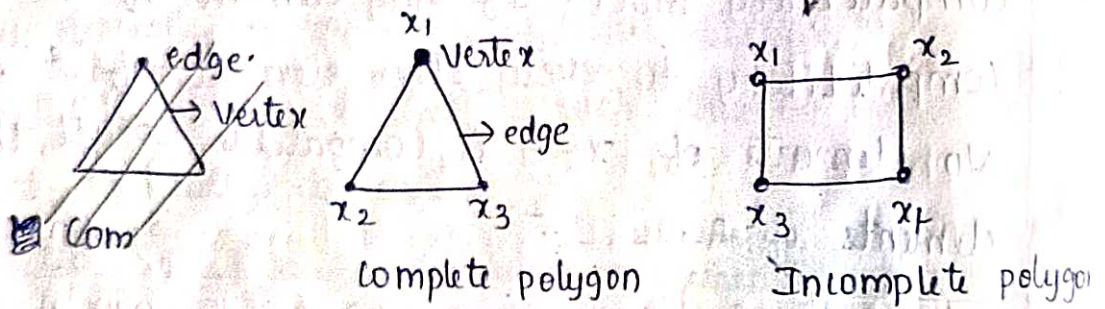 edge.
Vertex
Com
x1
Vertex
edge
x2 x3
Complete polygon
x1 x2
x3 x4
Incomplete polygo